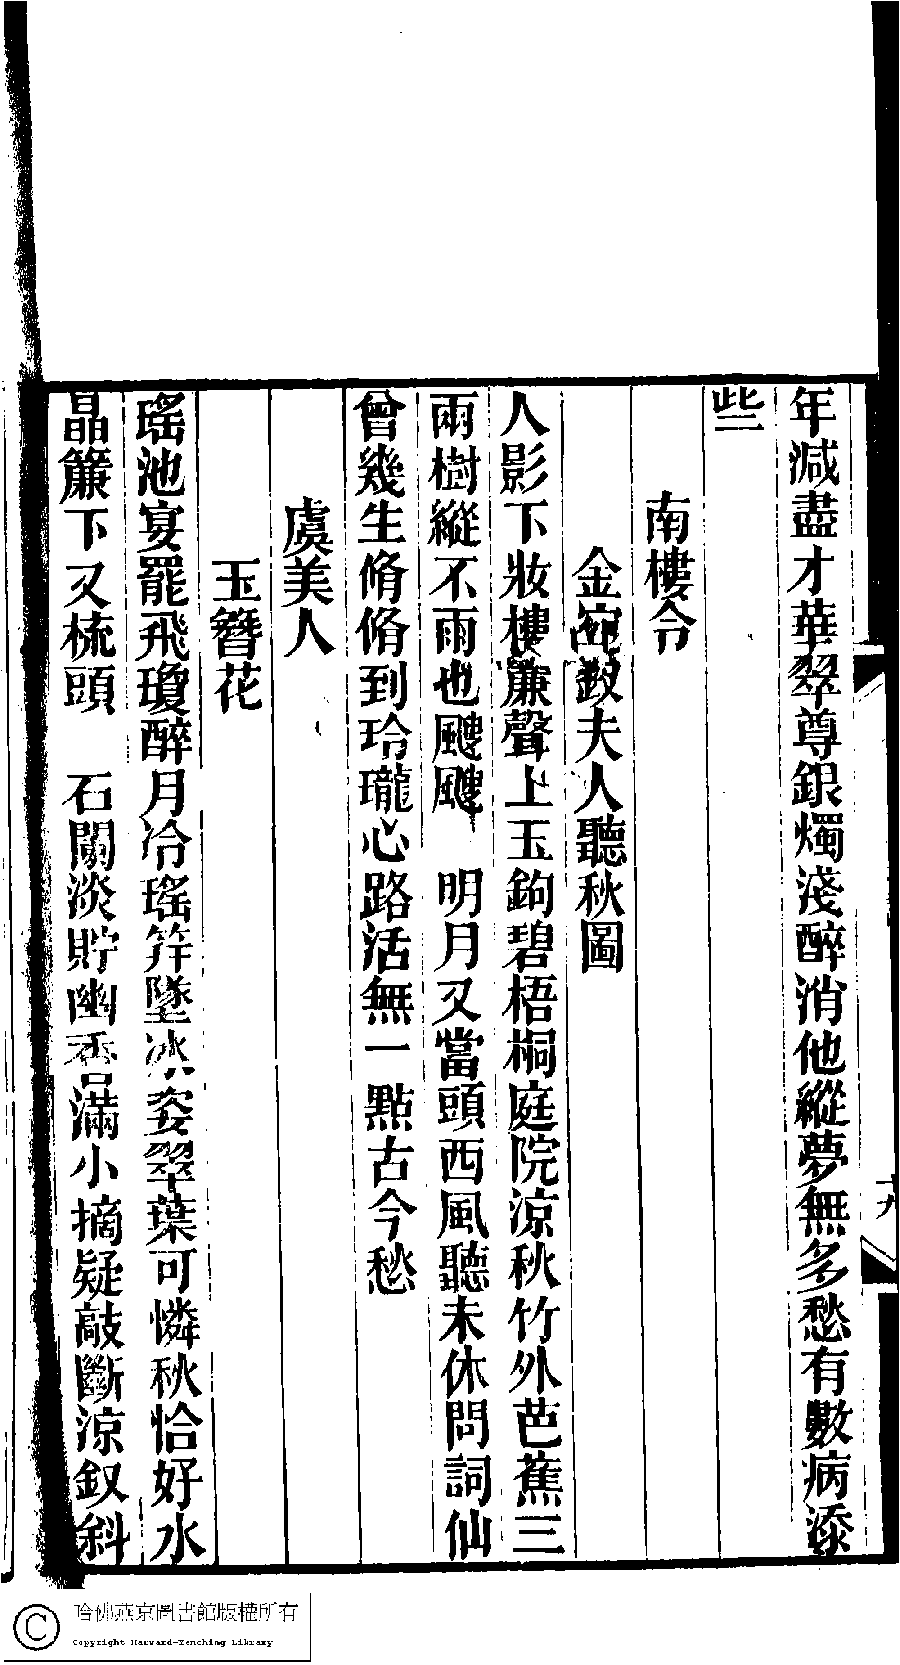 年減盡才華翠尊銀燭淺醉消他縱夢無多愁有數病添
些
南樓令
金宛釵夫人聽秋圖
人影下妝樓簾聲上玉鉤碧梧桐庭院涼秋竹外芭蕉三
兩樹縱不雨也颼颼　明月又當頭西風聽未休問詞仙
曾幾生脩脩到玲瓏心路活無一點古今愁
虞美人
玉簪花
瑤池宴罷飛瓊醉月冷瑤笄墜冰姿翠葉可憐秋恰好水
晶簾下又梳頭　石闌淡貯幽香滿小摘疑敲斷涼釵斜
十九
哈佛燕京圖書館版權所有
Copyright Harvard-Yenching Library